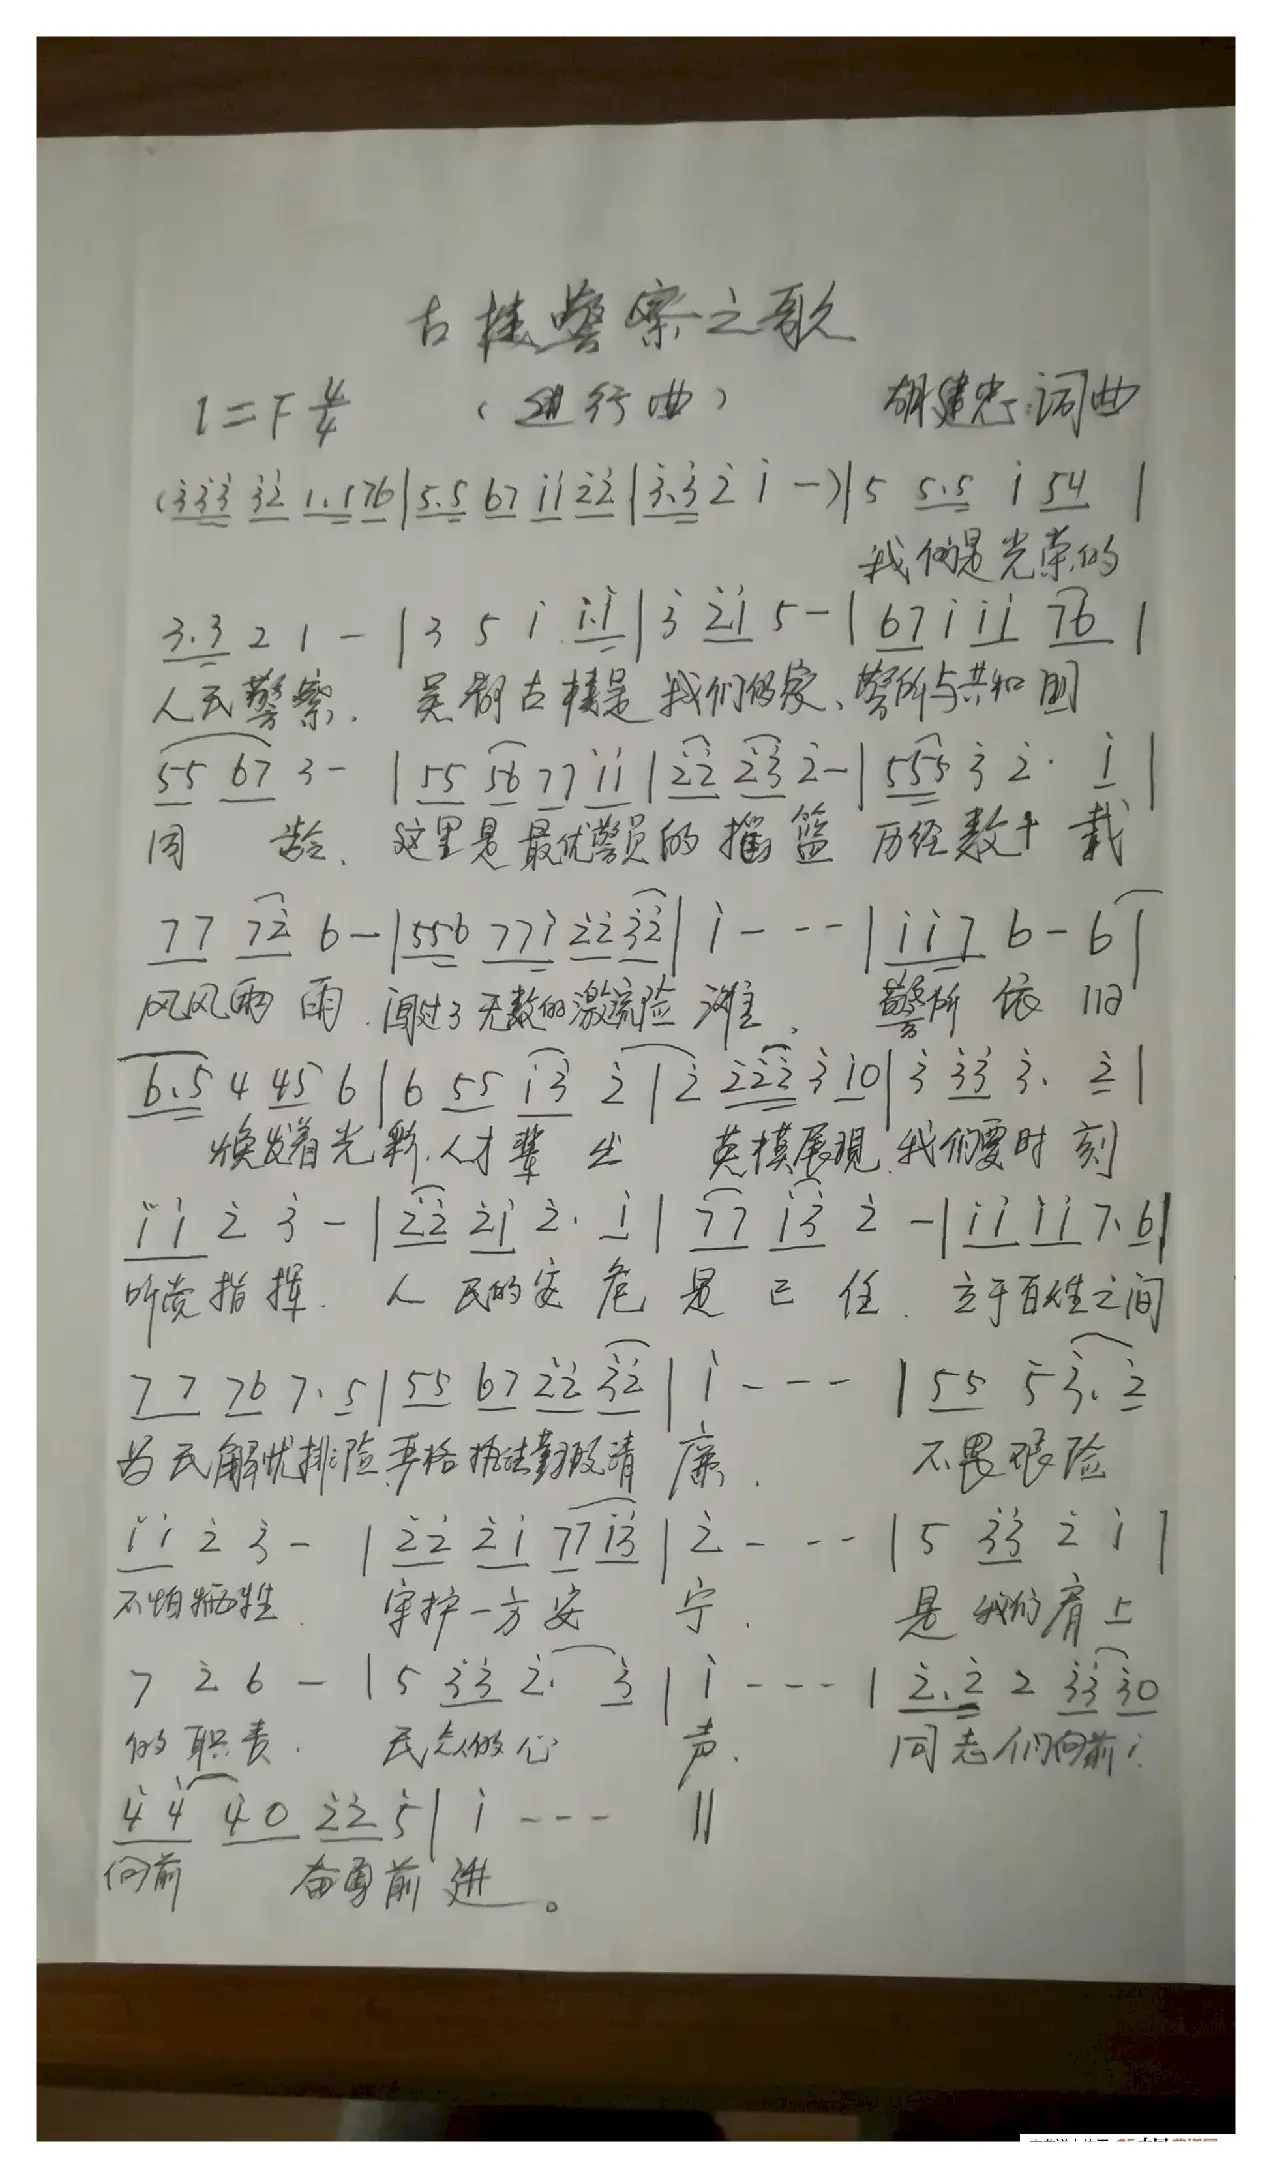 古楼警察之歌
1=F 4/4 （进行曲） 胡建忠:词曲
(3̇3̇3̇ 3̇2̇ 1.176|5.5 67 i i 2̇2̇|3̇.3̇ 2̇ i -)|5 5.5 i 54 |
我们是光荣的
3.3 2 1 - |3 5 i i.i|3̇ 2̇i 5-|67 i i i 76 |
人民警察. 芜湖古楼是我们的家、警所与共和国
55 67 3- |55 56 77 i i|2̇2̇ 2̇3̇ 2̇-|555 3̇ 2̇· i |
同 龄. 这里是最优警员的摇篮 历经数十载
77 72̇ 6-|556 77i 2̇2̇ 3̇2̇| i - - - |i i 7 6-6 |
风风雨雨.闯过了无数的激流险滩、 警所依旧
6.5 4 45 6|6 55 i3̇ 2̇|2̇ 2̇2̇2̇ 3̇ i0|3̇ 3̇3̇ 3̇. 2̇|
焕发着光彩.人才辈出 英模展现.我们要时刻
i i 2̇ 3̇ -|2̇2̇ 2̇i 2̇. i| 77 i3̇ 2̇ -|i i i i 7.6|
听党指挥. 人民的安危是己任. 立于百姓之间
77 76 7.5|55 67 2̇2̇ 3̇2̇| i - - - |55 5 3̇. 2̇
为民解忧排险.严格执法勤政清廉. 不畏艰险
i i 2̇ 3̇ - |2̇2̇ 2̇i 77 i3̇|2̇ - - -|5 3̇3̇ 2̇ i |
不怕牺牲. 守护一方安宁. 是我们肩上
7 2̇ 6 - |5 3̇3̇ 2̇. 3̇| i - - - | 2̇.2̇ 2 3̇3̇ 3̇0
的职责. 民众的心声. 同志们向前;
4̇ 4̇ 4̇0 2̇2̇ 5̇| i - - - ||
向前 奋勇前进。